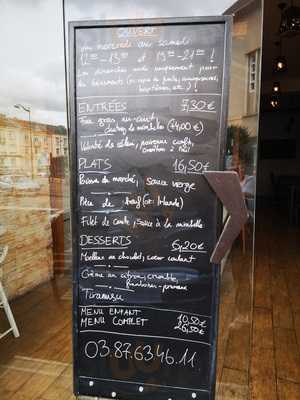 OUVERT
du mercredi au samedi
12 - 13 et 19 - 21 !
Les dimanches midi uniquement pour
les événements
baptêmes, etc.) !
ENTRÉES 7,30€
Foie gras mi-cuit,
chutney de mirabelles (+4,00€)
Velouté de céleri, poireaux confits,
PLATS 16,50€
Poisson du marché, sauce vierge
Pièce de bœuf (or: Irlande)
Filet de canette, sauce à la mirabelle
DESSERTS 6,20€
Moelleux au chocolat, cœur coulant
Crème au citron, crumble,
Tiramisu
MENU ENFANT 10,50
MENU COMPLET 26,50€
03.87.63.46.11